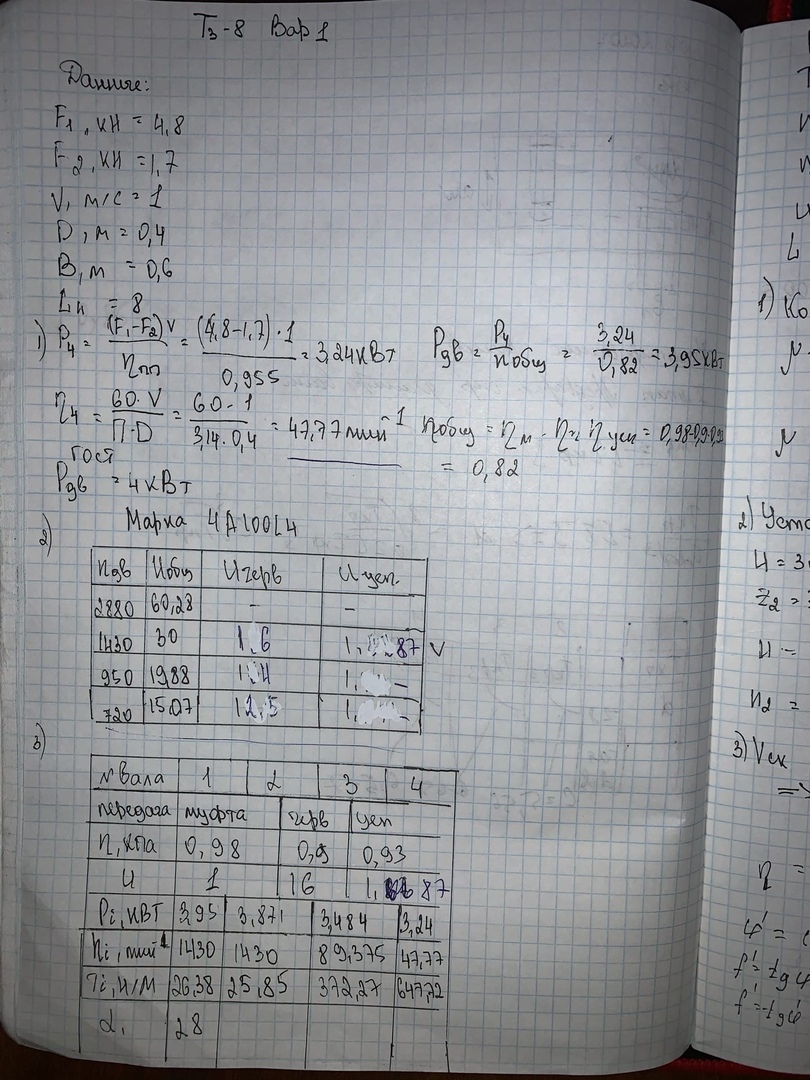 Тз-8 Вар 1
Данные:
F1, кН = 4,8
F2, кН = 1,7
V, м/с = 1
D, м = 0,4
B, м = 0,6
Lн = 8
1) P4 = (F1-F2)V / ηпп = (4,8-1,7)·1 / 0,955 = 3,24 кВт Pдв = P4 / ηобщ = 3,24 / 0,82 = 3,95 кВт
n4 = 60·V / П·D = 60·1 / 3,14·0,4 = 47,77 мин-1 ηобщ = ηм · ηч · ηцеп = 0,98·0,9·0,93
= 0,82
ГОСТ
Pдв = 4 кВт
2) Марка 4А100L4
nдв Uобщ Uчерв Uцеп.
2880 60,28 - -
1430 30 16 1,87 V
950 19,88 14 1, -
720 15,07 12,5 1, -
3)
№ Вала 1 2 3 4
передача муфта черв цеп
η, кпа 0,98 0,9 0,93
U 1 16 1,87
Pi, кВт 3,95 3,871 3,484 3,24
ni, мин-1 1430 1430 89,375 47,77
Ti, Н/м 26,38 25,85 372,27 647,72
di 28
1) Ко
2) Уста
U = 3,
Z2 =
U =
n2 =
3) Vск
=>
η =
φ' =
f' = tg φ
f' = tg φ'